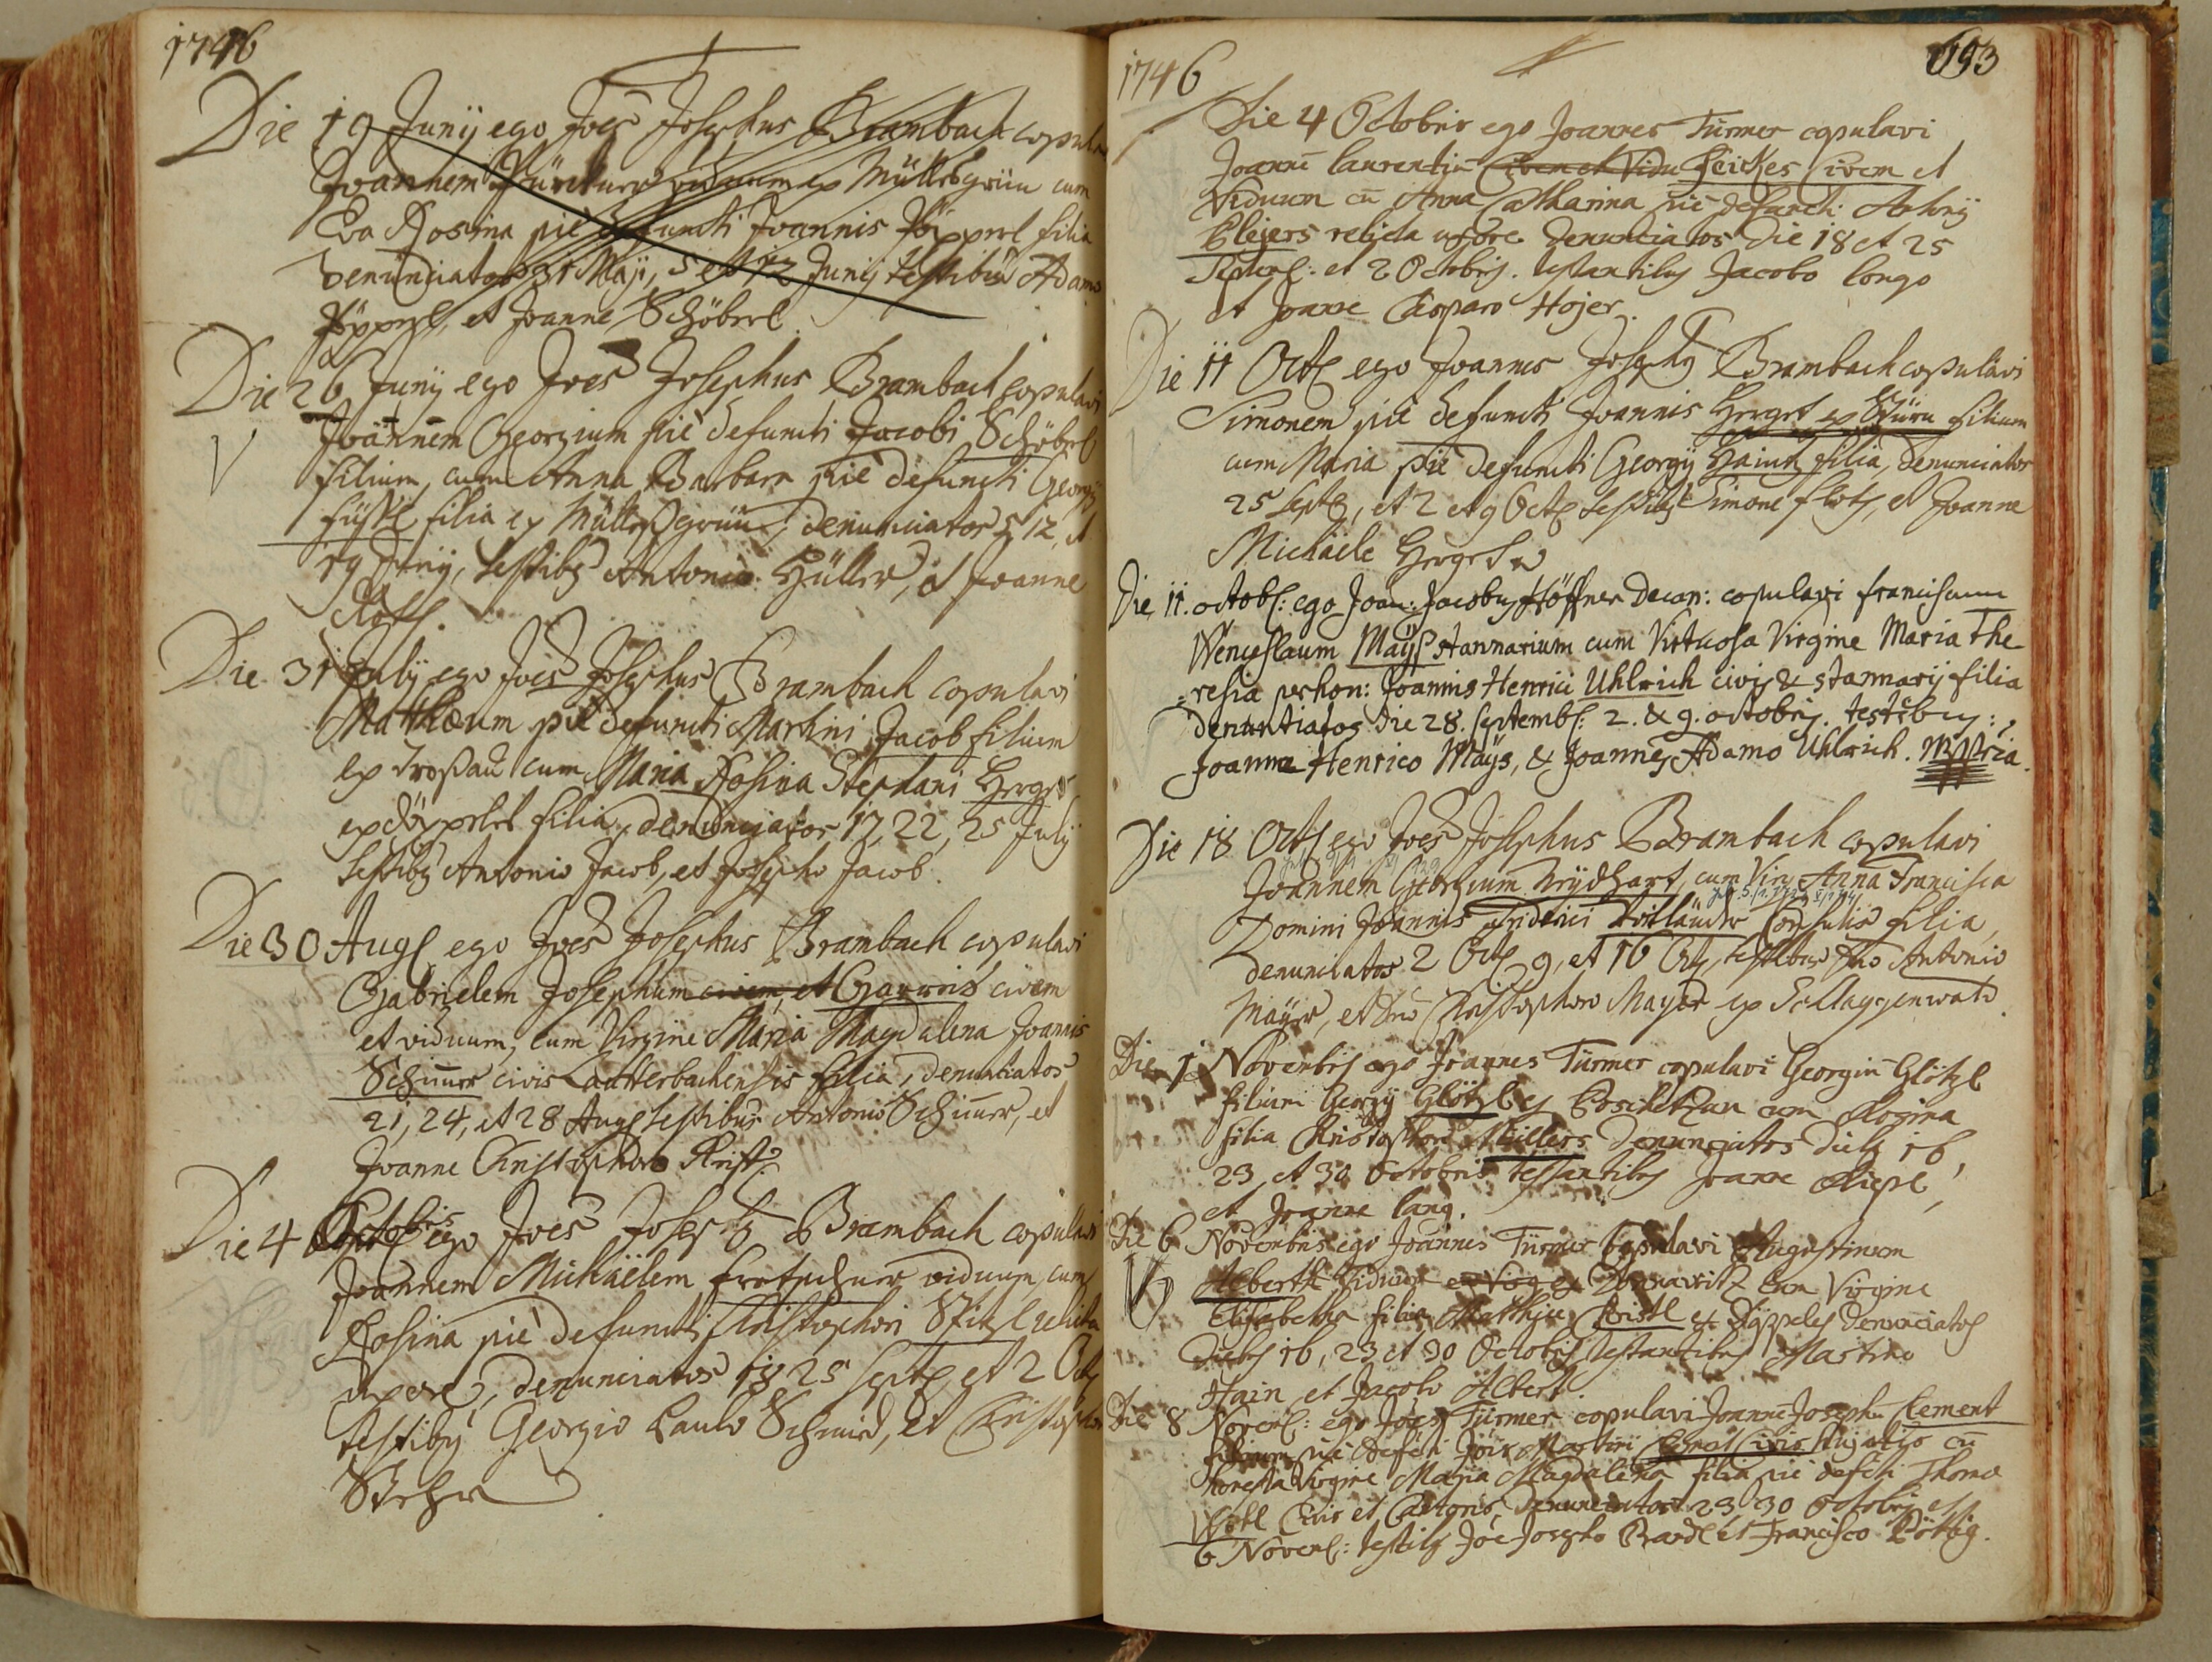 1746
Die 19 Junij ego Joes Josephus Brambach copula
Joannem viduum ex Müllesgrün cum
Eva Rosina pie defuncti Joannis Pöpperl filia
denunciatos 31 Maji, 5 et 12 Junij testibus Adamo
Pöpperl, et Joanne Schöberl
Die 26 Junij ego Joes Josephus Brambach copulavi
Joannem Georgium pie defuncti Jacobi Schöberl
filium, cum Anna Barbara pie defuncti Georgij
filia ex Müllesgrün, denunciatos 5 12, et
19 Junij, testibg Antonio Hüller, et Joanne
Die 31 July ego Joes Josephus Brambach copulavi
Matthæum pie defuncti Martini Jacob filium
ex Trossau cum Maria Rosina Stephani Herget
ex Döppeles filia, denunciatos 17, 22, 25 July
testibg Antonio Jacob, et Josepho Jacob.
Die 30 Aug ego Joes Josephus Brambach copulavi
Gabrielem Josephum civem, et civem
et viduum, cum Virgine Maria Magdalena Joannis
Schimer civis Lautterbachensis filia, denunciatos
21, 24, et 28 Aug testibus Antonio Schimer, et
Joanne Christophoro
Die 4 Octobris ego Joes Josephg Brambach copulavi
Joannem Michäelem viduum, cum
Rosina pie defuncti Christophori relicta
uxore, denunciatos 18 25 Sept et 2 Oct
testibg Georgio Paulo Schmid, et Christophoro
Stehr
1746
693
Die 4 Octobris ego Joannes Türmer copulavi
Joannē laurentiū Civem et Vidu Civem et
Viduum cū Anna Catharina pie defuncti Antonij
Plejers relicta uxore. Denunciatos Die 18 et 25
Septembr: et 2 Octobris. testantibg Jacobo longo
et Joanne Casparo Hojer.
Die 11 Oct ego Joannes Josephg Brambach copulavi
Simonem pie defuncti Joannis Herget ex filium
cum Maria pie defuncti Georgij filia, denunciatos
25 Sept, et 2 et 9 Oct testibg Simone et Joanne
Michäele Herget
Die 11. octob: ego Joan: Jacobus Höffner Decan: copulavi franciscum
Wenceslaum Maÿs stannarium cum Virtuosa Virgine Maria The
=resia perhon: Joannis Henrici Uhlrich civis & stannarij filia
denuntiatos die 28. septemb: 2. & 9. octobris. testibus:
Joanne Henrico Maÿs, & Joannes Adamo Uhlrich.
Die 18 Oct ego Joes Josephus Brambach copulavi
Joannem Georgium Neydhart, cum Virg Anna Francisca
Domini Joannis Friderici Consulis filia,
denunciatos 2 Oct 9, et 16 Oct, testibus Dno Antonio
Mayer, et Dno Christophoro Mayer ex Schlaggenwald.
Die 1 Novembris ego Joannes Türmer copulavi Georgiū Glötzl
filium Georgij Glötzl ex Poschetzau cum Rosina
filia Christophori Müllers Denunciatos Diebg 16,
23, et 30 Octobris testantibg Joanne Riepl,
et Joanne lang.
Die 6 Novembris ego Joannes Türmer copulavi Augustinum
Alberth Viduum cum Virgine
Elisabetha filia Matthiæ ex Döppeles Denunciatos
Diebg 16, 23 et 30 Octobris testantibg Martino
Hain et Jacobo Albert.
Die 8 Novemb: ego Joes Türmer copulavi Joannē Josephū Clement
filium pie defcti Jois Martini Civis cū
honesta Virgine Maria Magdalena filia pie defcti Thomæ
Civis et Denunciatos 23 30 Octobris et
6 Novemb: testibg Joe Josepho et Francisco